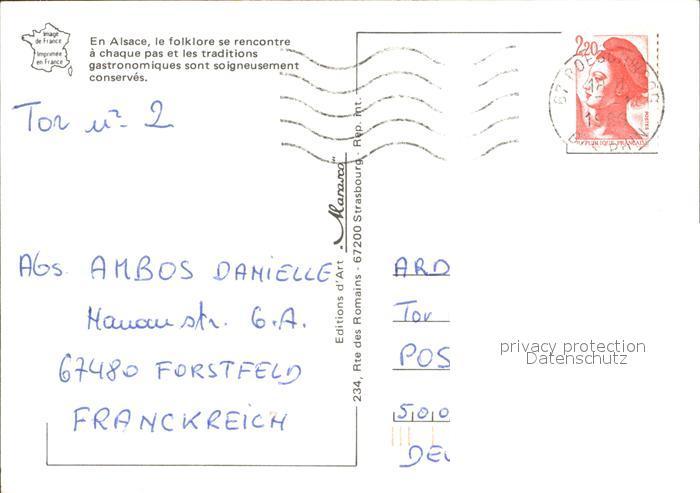 Image
de France
Imprimée
en France
En Alsace, le folklore se rencontre
à chaque pas et les traditions
gastronomiques sont soigneusement
conservés.
Tor nr 2
Abs. AMBOS DANIELLE
Hanauerstr. 6.A.
67480 FORSTFELD
FRANCKREICH
Editions d'Art
234, Rte des Romains - 67200 Strasbourg - Rep. int.
2,20
POSTES
REPUBLIQUE FRANÇAISE
67
ARD
Tor
POS
500
privacy protection
Datenschutz